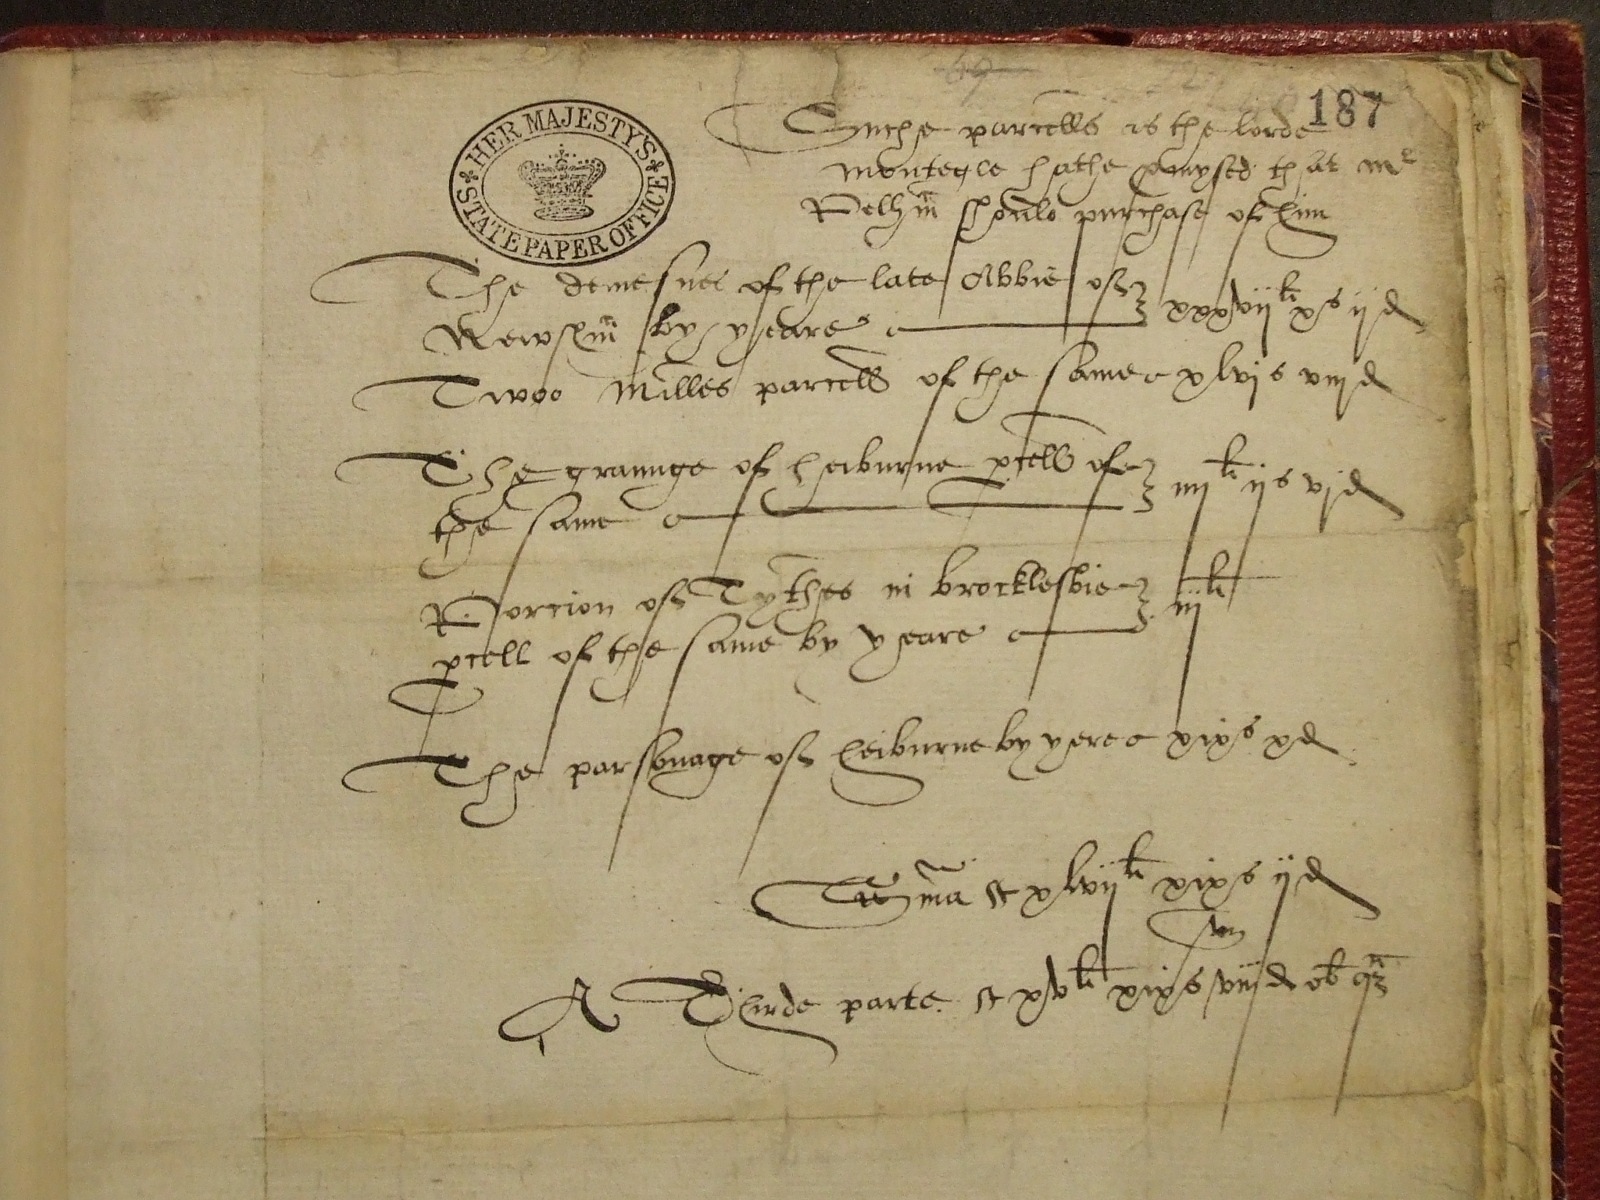 187
HER MAJESTY'S
STATE PAPER OFFICE
Suche parcells as the lorde
Montegle hathe pmysed that Mr
Pelhm shoulde purchase of him
The demesnes of the late Abbie of
Newshm by yeare xxxvij li xs ijd
Twoo Milles parcell of the same xlvjs viijd
The graunge of heiburne pcell of
the same iiij li ijs vjd
Porcion of Tythes in brocklesbie
pcell of the same by yeare iij li
The parsonage of heiburne by yere xixs xd
Sma xlvij li xixs ijd
A Thirde parte xv li xixs viijd ob qz